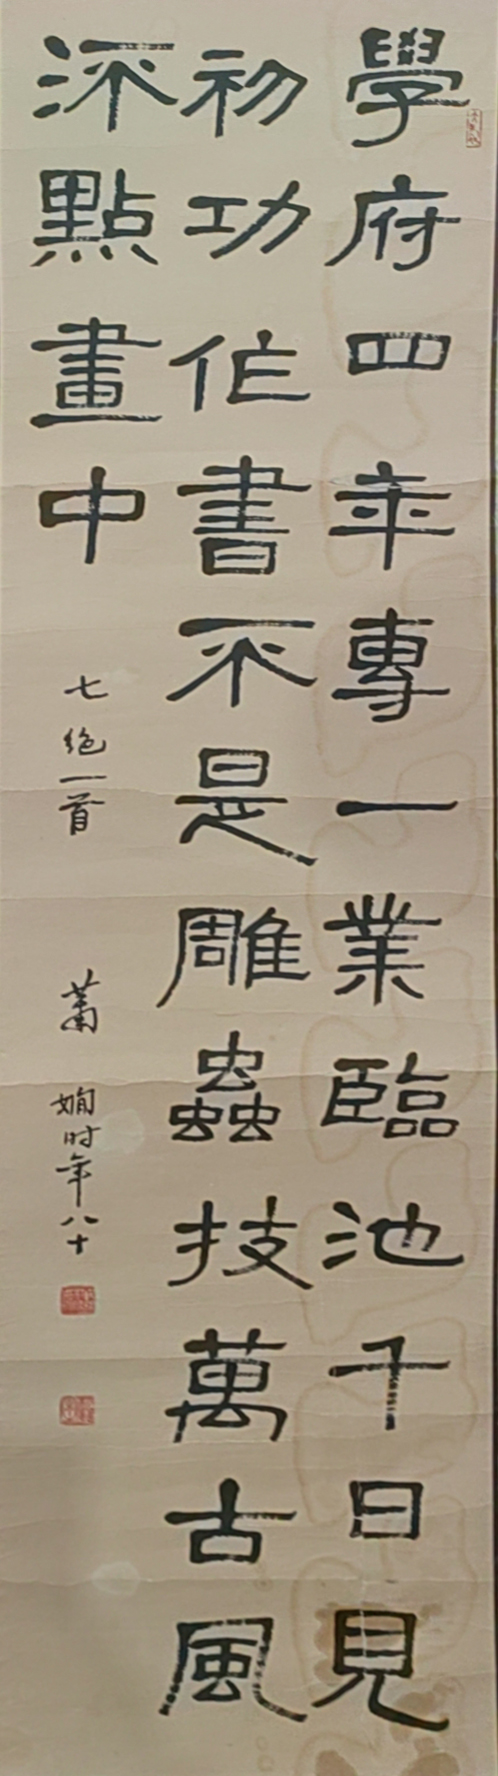 學府四年專一業臨池千日見
初功作書不是雕蟲技萬古風
流點畫中
七絶一首 蕭嫺时年八十